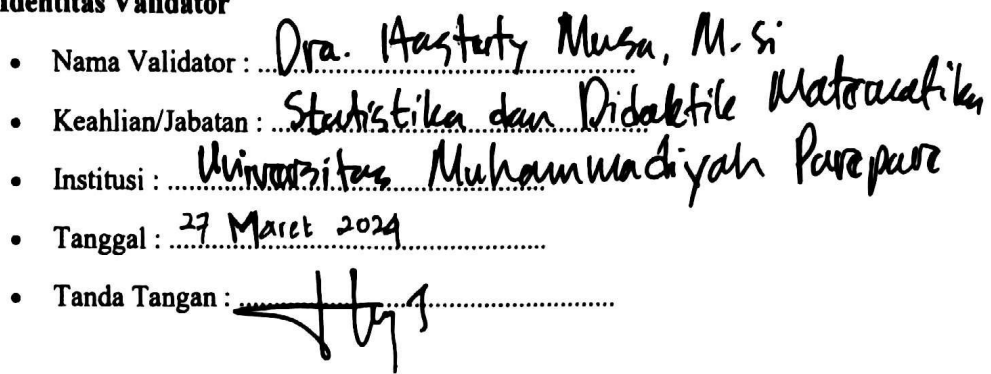 Identitas Validator
• Nama Validator : Dra. Hastuty Musa, M.Si
• Keahlian/Jabatan : Statistika dan Didaktik Matematika
• Institusi : Universitas Muhammadiyah Parepare
• Tanggal : 27 Maret 2024
• Tanda Tangan :